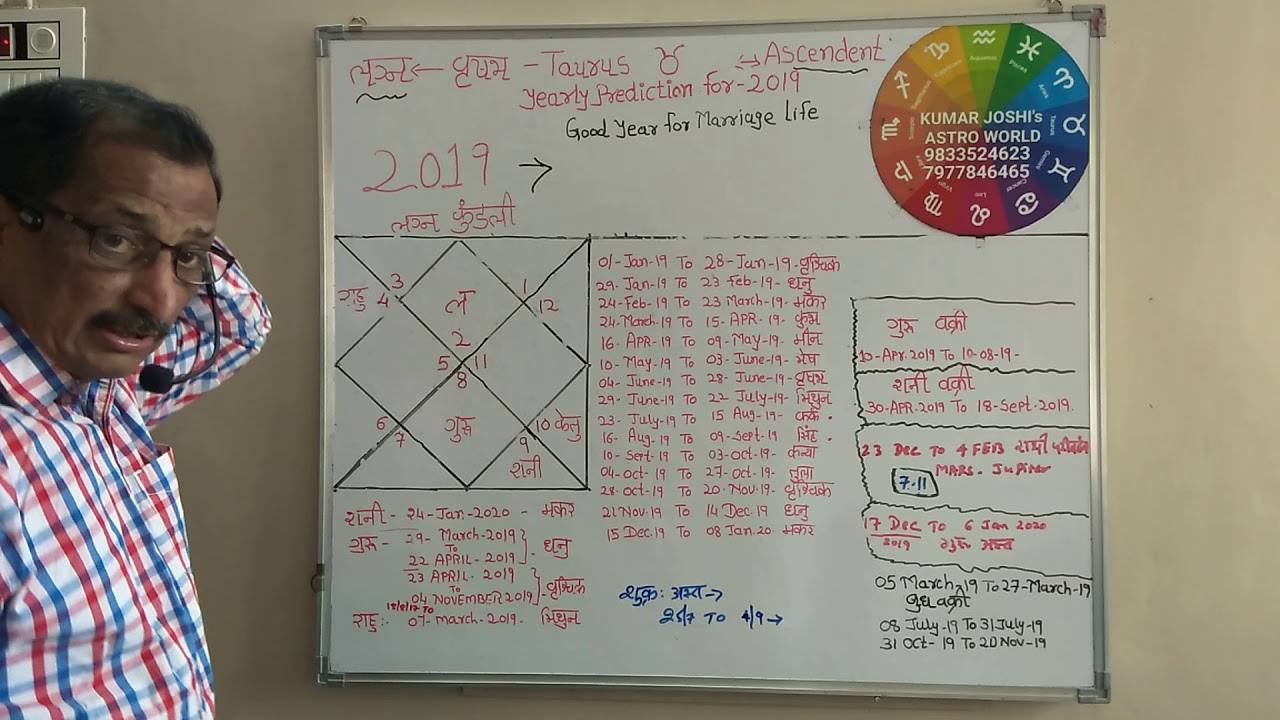 लग्न ← वृषभ - Taurus ♉ → Ascendent
Yearly Prediction for - 2019
Good Year for Marriage life
2019 →
लग्न कुंडली
KUMAR JOSHI's
ASTRO WORLD
9833524623
7977846465
Aquarius
Pisces
Aries
Taurus
Gemini
Cancer
Leo
Virgo
3
1
राहु 4
ल
12
2
5 11
8
6
गुरु
10 केतु
7
9
शनी
01-Jan-19 To 28-Jan-19-वृश्चिक
29-Jan-19 To 23 Feb-19-धनु
24-Feb-19 To 23 March-19-मकर
24-March-19 To 15-APR-19-कुंभ
16-APR-19 To 09-May-19-मीन
10-May-19 To 03-June-19-मेष
04-June-19 To 28-June-19-वृषभ
29-June-19 To 22 July-19-मिथुन
23-July-19 To 15 Aug-19-कर्क.
16-Aug-19 To 09-Sept-19 सिंह.
10-Sept-19 To 03-oct-19-कन्या
04-oct-19 To 27-oct-19-तुला
28-oct-19 To 20-Nov-19-वृश्चिक
21 Nov-19 To 14 Dec.19 धनु
15 Dec.19 To 08 Jan.20-मकर
गुरु वक्री
10-Apr.2019 To 10-08-19-
शनी वक्री
30-APR.2019 To 18-Sept.2019.
23 Dec To 4 FEB राशी परीवर्तन
MARS-Jupiter
7.11
17 Dec To 6 Jan 2020
2019 गुरू अस्त
05 March-19 To 27-March-19
बुध वक्री
08 July-19 To 31 July-19
31 Oct-19 To 20 Nov-19
शनी - 24-Jan-2020 - मकर
गुरू - 29-March-2019
To
22 APRIL-2019 } - धनु
23 APRIL-2019
To
04 NOVEMBER 2019 } - वृश्चिक
18/8/17 To
राहु:- 07-March-2019- मिथुन
शुक्र: अस्त →
25/7 To 4/9 →